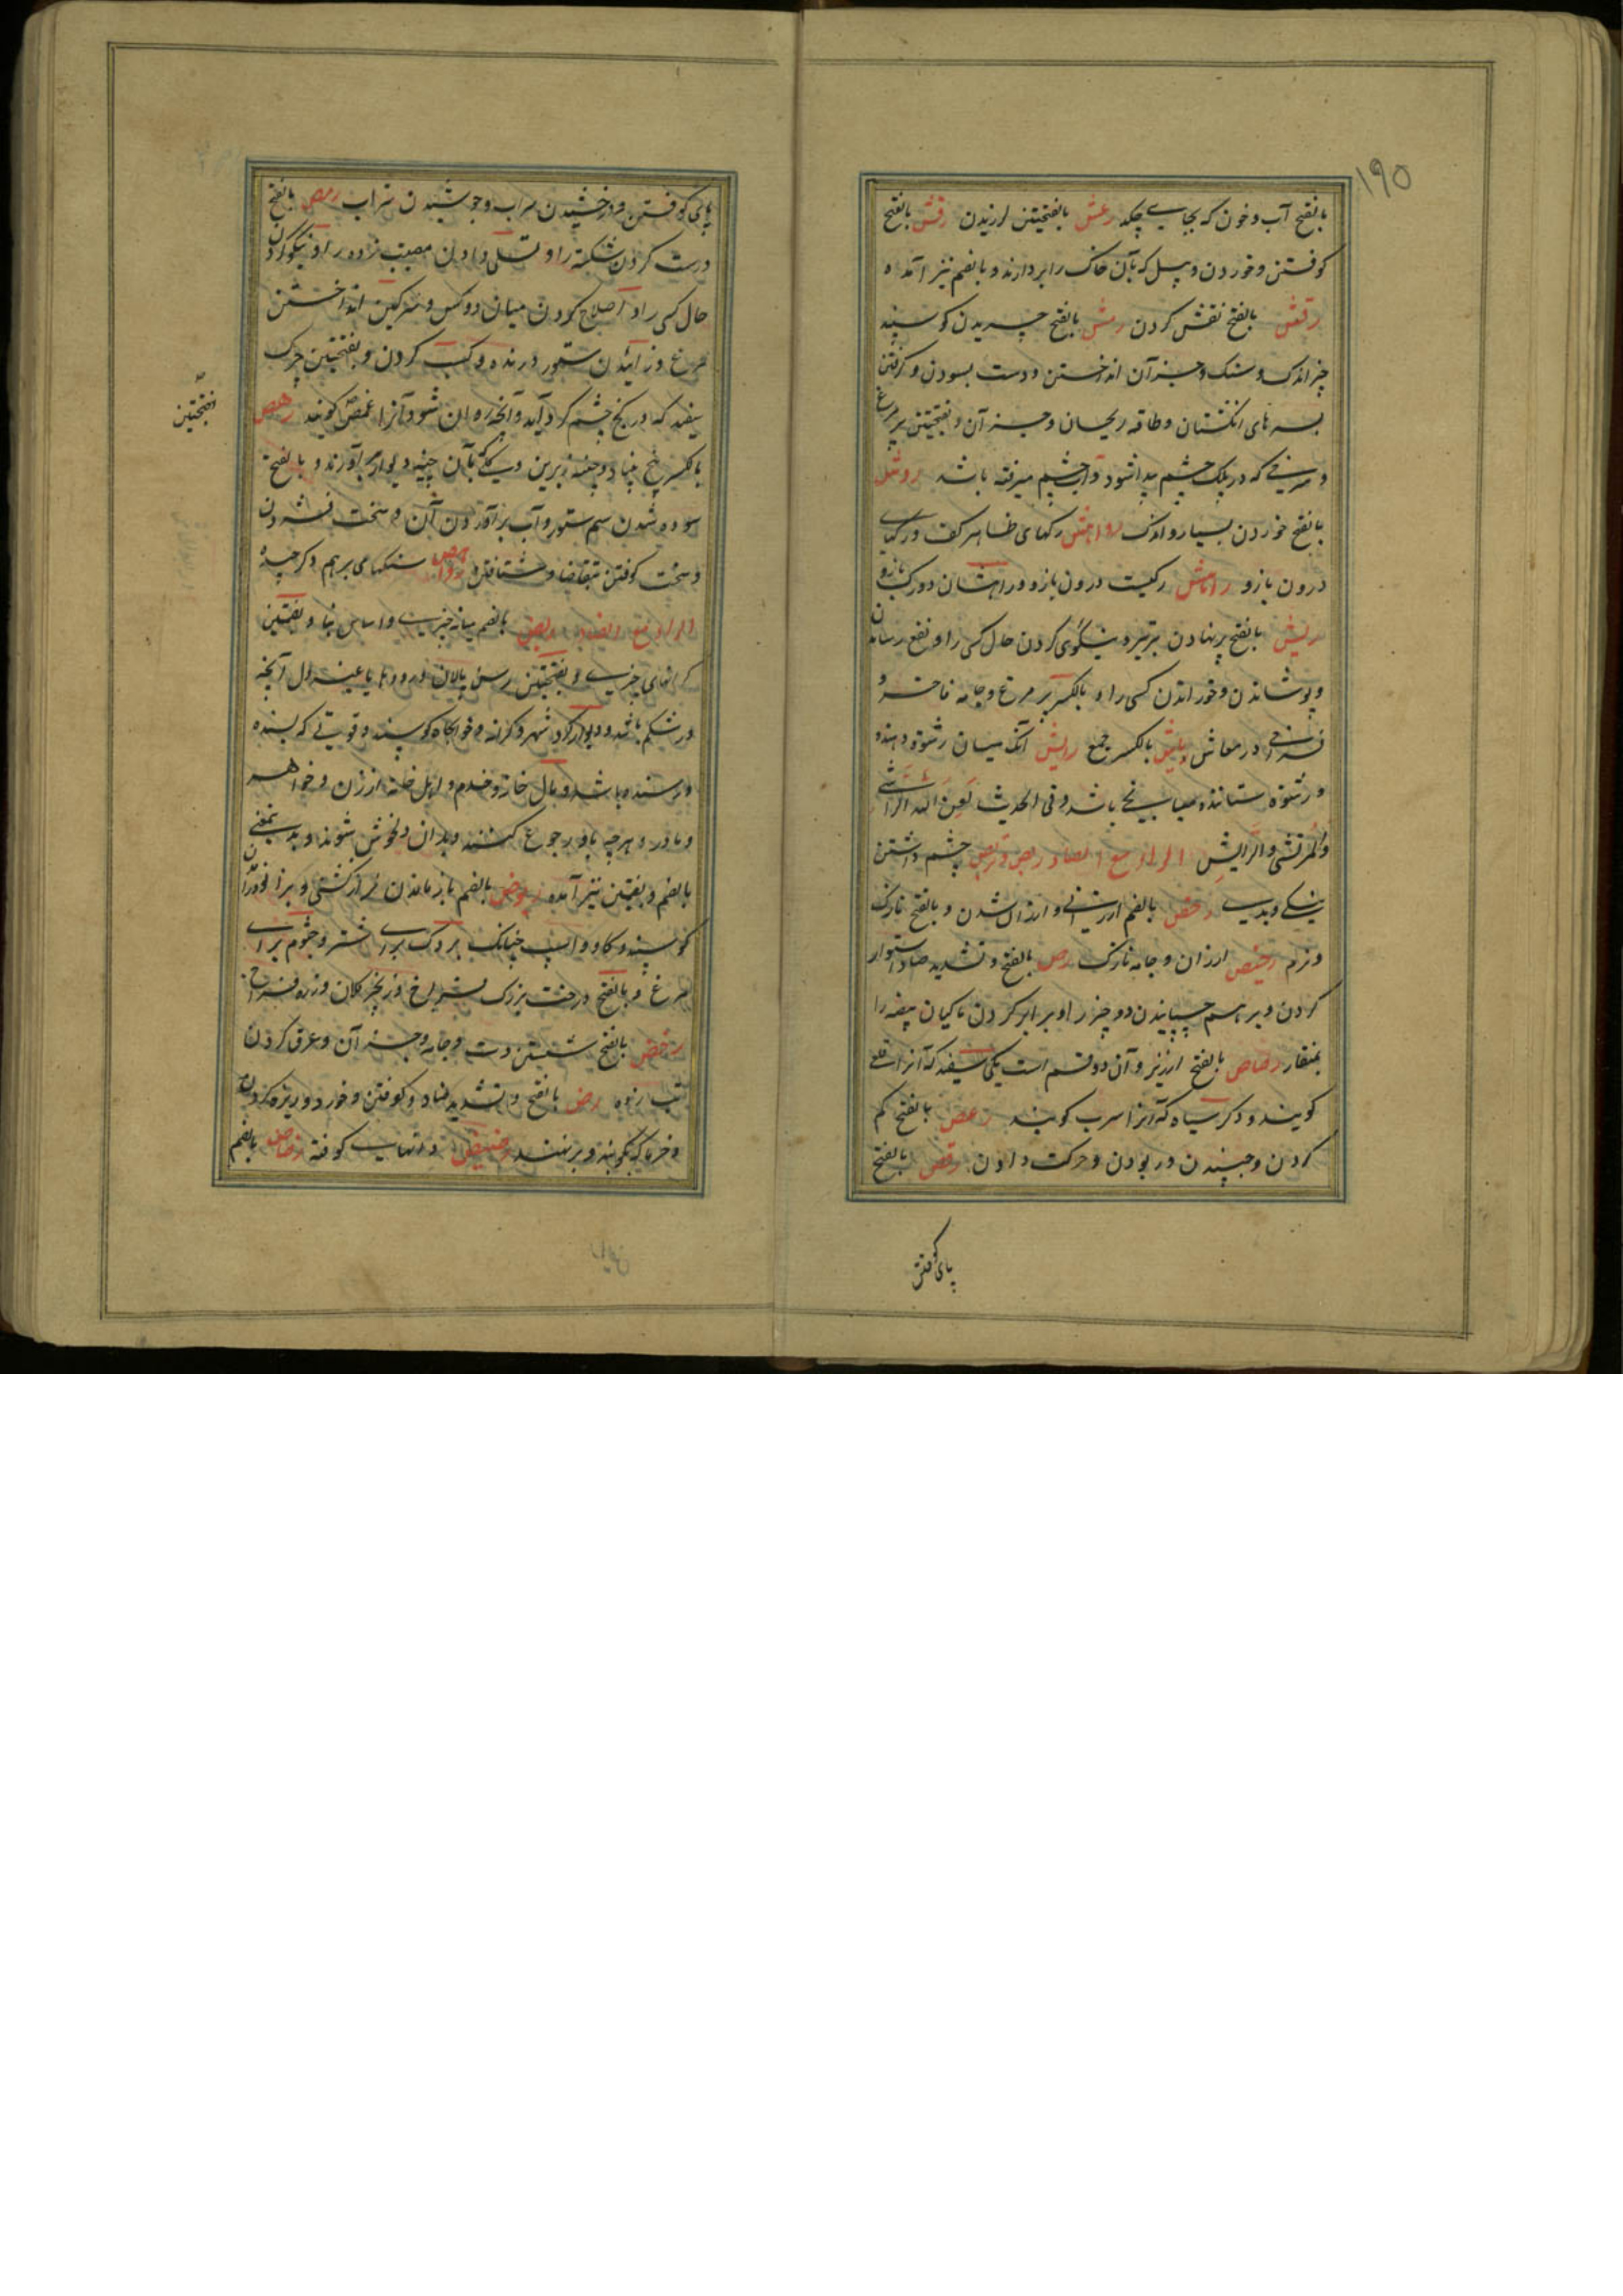 ۱۹۵
بالفتح آب و خون که بجایی چکد رعش بالفتحتین لرزیدن رفش بالفتح
کوفتن و خوردن و بیل که بآن خاک را بردارند و بالضم نیز آمده
رقش بالفتح نقش کردن رمش بالفتح چریدن کوسپند
چیز اندک و سنک و جز آن انداختن و دست بسودن و کرفتن
بسرهای انکشتان و طاقه ریحان و جز آن و بفتحتین
و سرخی که در پلک چشم پیدا شود و آب چشم میرفته باشد روش
بالفتح خوردن بسیار و اندک رواهش رکهای ظاهر کف و رکهای
درون بازو راهش رکیست درون بازو و راهشان دو رک بازو
ریش بالفتح پر نهادن بر تیر و نیکوی کردن حال کسی را و نفع رسانیدن
و پوشاندن و خوراندن کسی را و بالکسر پر مرغ و جامه فاخره و
فراخی در معاش ریاش بالکسر جمع رایش آنکه میان رشوه دهنده
و رشوه ستاننده میانجی باشد و فی الحدیث لعن الله الراشی
والمرتشی والرایش الراء مع الصاد ربص و تربص چشم داشتن
نیکی و بدی رخص بالضم ارزانی و ارزان شدن و بالفتح نازک
و نرم رخیص ارزان و جامه نازک رص بالفتح و تشدید صاد استوار
کردن و بر هم چسپانیدن دو چیز را و برابر کردن ماکیان بیضه را
بمنقار رصاص بالفتح ارزیز و آن دو قسم است یکی سفید که آنرا قلعی
کویند و دکر سیاه که آنرا سرب کویند رعص بالفتح کم
کردن و جنبیدن و ربودن و حرکت دادن رقص بالفتح
پای کوفتن
پای کوفتن و درخشیدن سراب و جوشیدن شراب رمص بالفتح
درست کردن شکسته را و تسلی دادن مصیبت زده را و نیکو کردن
حال کسی را و اصلاح کردن میان دو کس و سرکین انداختن
مرغ و زائیدن ستور درنده و کسب کردن و بفتحتین چرک
سفید که در کنج چشم کرد آید و آنچه روان شود آنرا غمص کویند رهص
بفتحتین
بالکسر بیخ بنیاد و چینه زیرین دیوار که بآن چینه دیوار برآورند و بالفتح
سوده شدن سم ستور و آب برآوردن آن و سخت فشردن
و سخت کوفتن بتقاضا و شتافتن رواهص سنکهای بر هم
الراء مع الضاد ربض بالضم میانه چیزی و اساس بنا و بضمتین
کرانهای چیزی و بفتحتین رسن پالان و رودها یا غیر دل آنچه
در شکم باشد و دیوار کرد شهر و کرانه و خوابکاه کوسپند و قوتی که بسنده
و رسنده باشد و مال خانه و خدم و اهل خانه از زن و خواهر
و مادر و هرچه باو رجوع کنند و بدان دلخوش شوند و بدین معنی
بالضم و بضمتین نیز آمده ربوض بالضم باز ماندن
کوسپند و کاو و اسپ چنانکه بروک برای شتر و جثوم برای
مرغ و بالفتح درخت بزرک بسیار شاخ و زنجیر کلان و زره فراخ
رحض بالفتح شستن دست و جامه و جز آن و عرق کردن
تب زده رض بالفتح و تشدید ضاد کوفتن و خورد و ریزه کردن
و خرما که بکوبند رضیض در انتهاب کوفته رضاض بالضم